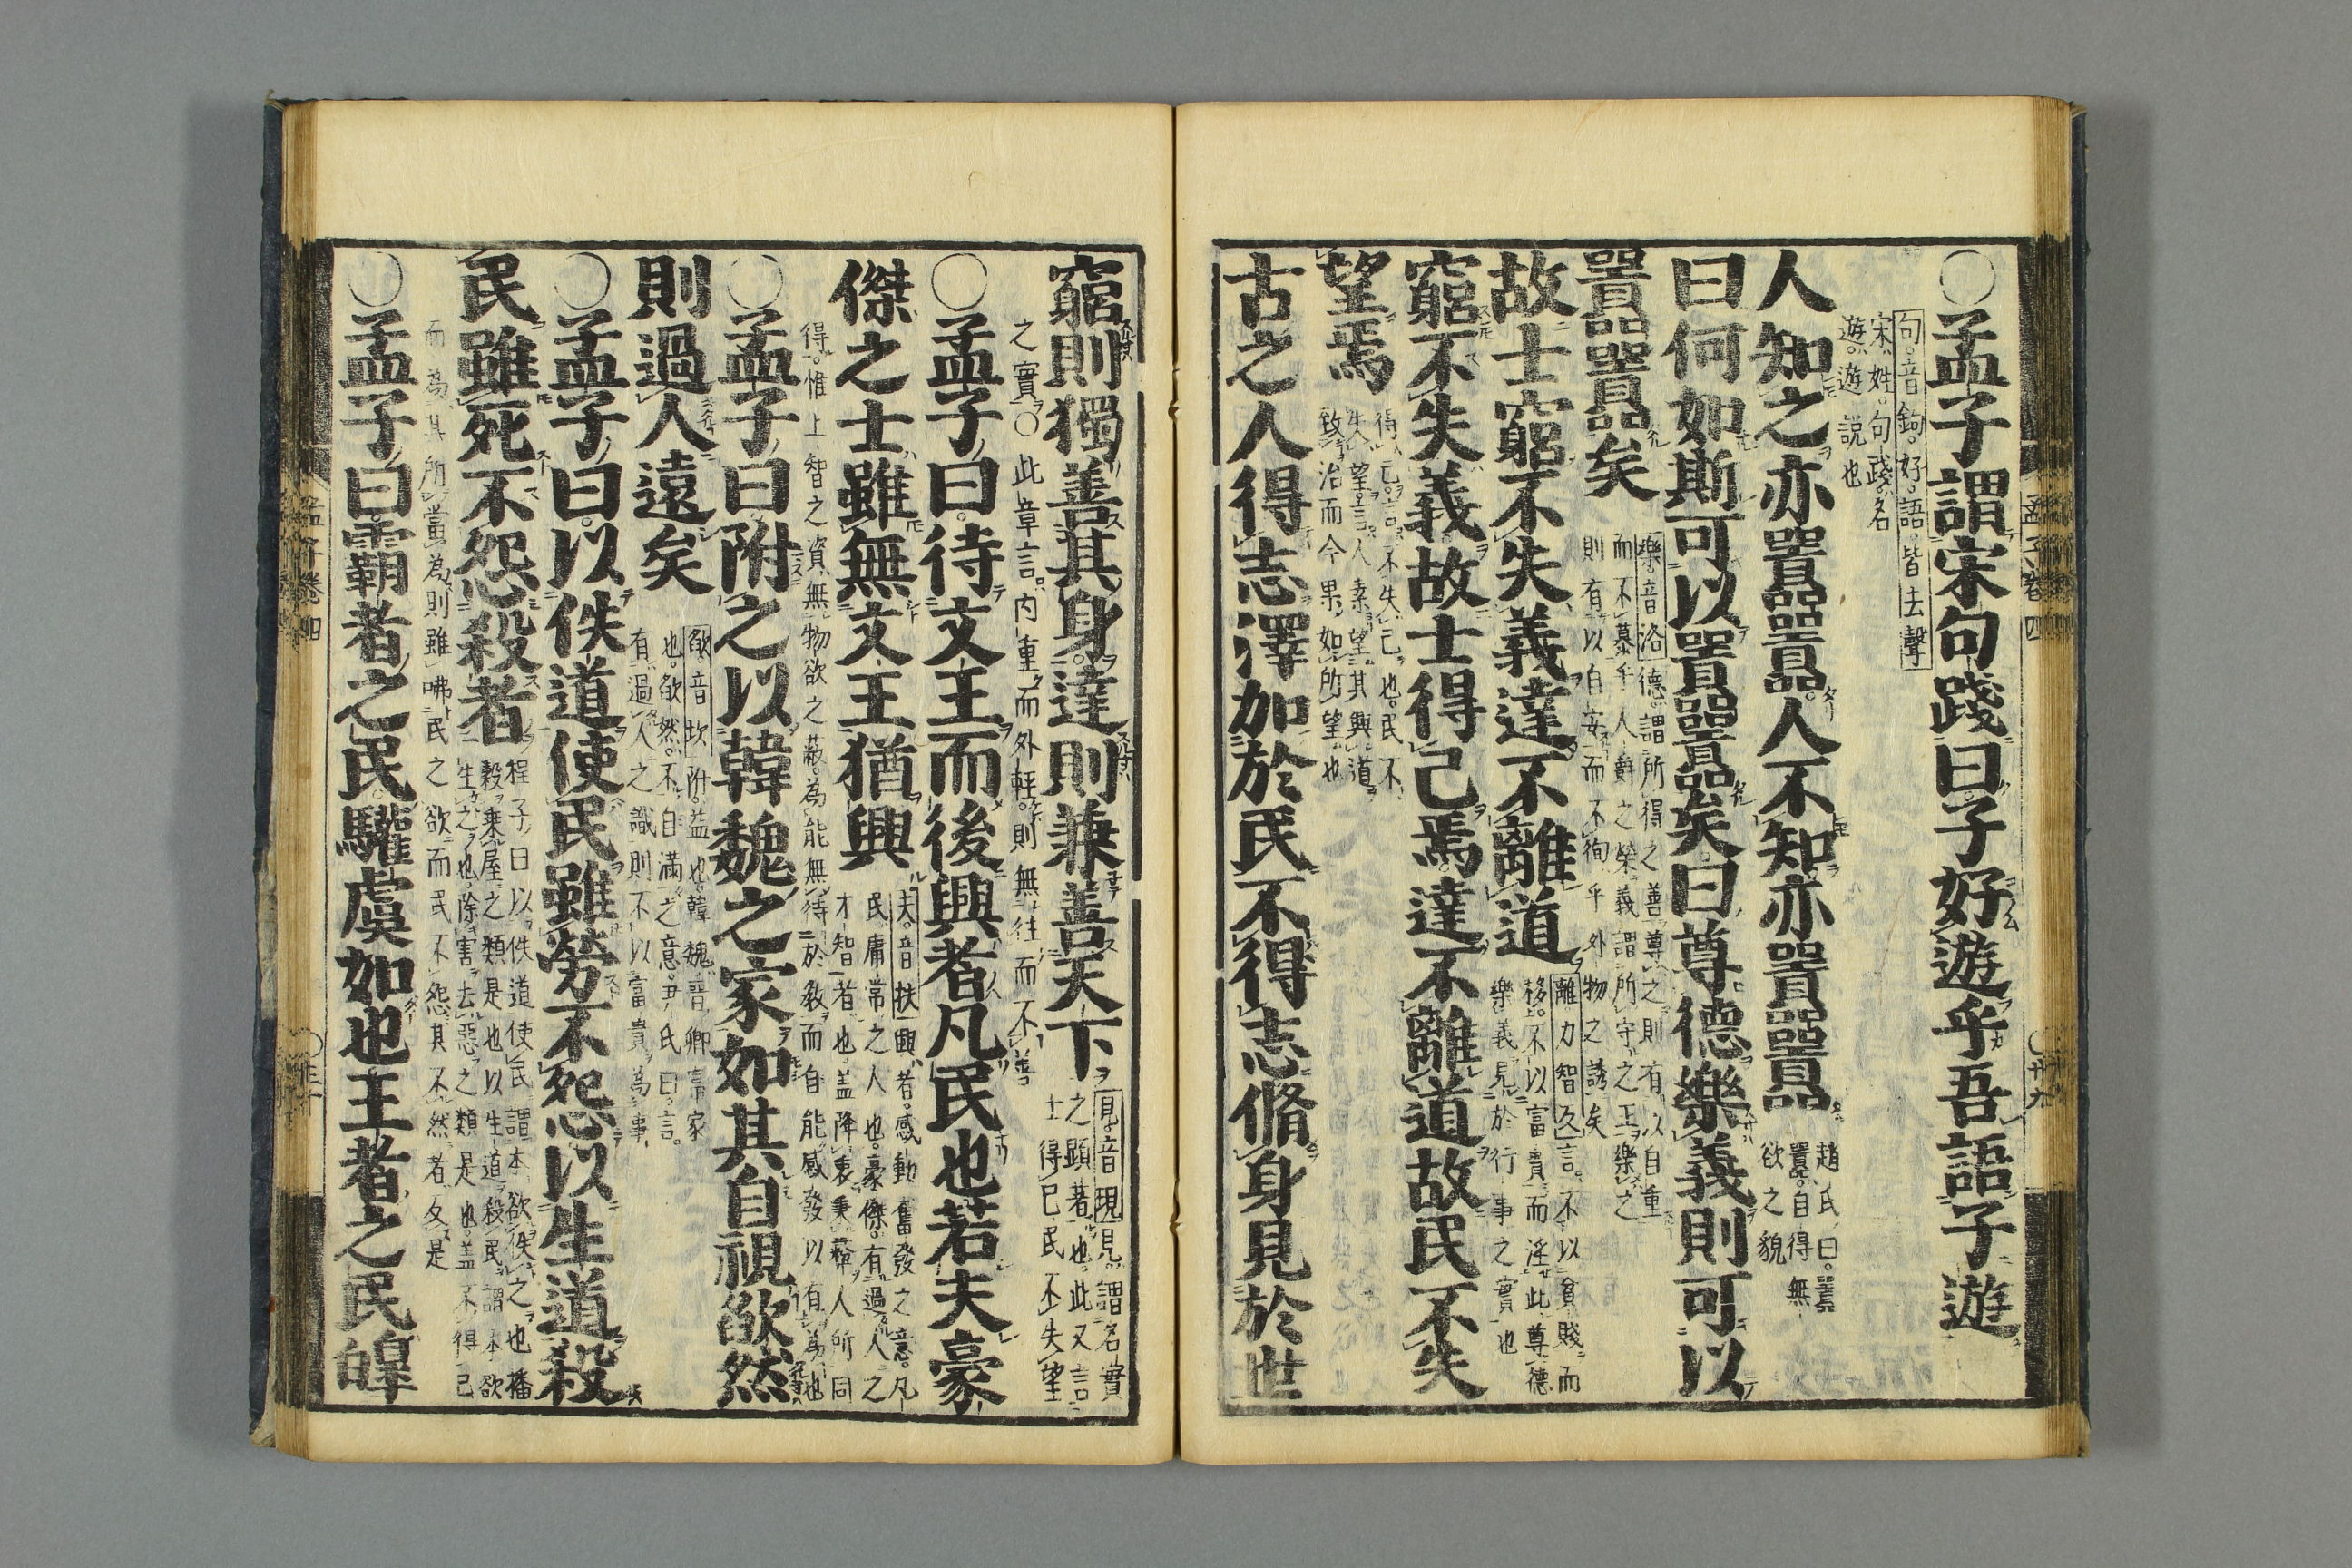 ○孟子謂宋句踐曰子好遊乎吾語子遊
句音鉤好語皆去聲
宋姓句踐名
遊遊說也
人知之亦囂囂人不知亦囂囂
趙氏曰囂
囂自得無
欲之貌
曰何如斯可以囂囂矣曰尊德樂義則可以
囂囂矣
樂音洛德謂所得之善尊之則有以自重
而不慕乎人爵之榮義謂所守之正樂之
則有以自安而不徇乎外物之誘矣
故士窮不失義達不離道
離力智反言不以貧賤而
移不以富貴而淫此尊德
樂義見於行事之實也
窮不失義故士得己焉達不離道故民不失
望焉
得己言不失己也民不
失望言人素望其興道
致治而今果如所望也
古之人得志澤加於民不得志脩身見於世
窮則獨善其身達則兼善天下
見音現見謂名實
之顯著也此又言
士得己民不失望
之實○此章言內重而外輕則無往而不善
○孟子曰待文王而後興者凡民也若夫豪
傑之士雖無文王猶興
夫音扶興者感動奮發之意凡
民庸常之人也豪傑有過人之
才智者也蓋降衷秉彝人所同
得惟上智之資無物欲之蔽為能無待於敎而自能感發以有為也
○孟子曰附之以韓魏之家如其自視欿然
則過人遠矣
欿音坎附益也韓魏晉卿富家
也欿然不自滿之意尹氏曰言
有過人之識則不以富貴為事
○孟子曰以佚道使民雖勞不怨以生道殺
民雖死不怨殺者
程子曰以佚道使民謂本欲佚之也播
穀乘屋之類是也以生道殺民謂本欲
生之也除害去惡之類是也蓋不得已
而為其所當為則雖咈民之欲而民不怨其不然者反是
○孟子曰霸者之民驩虞如也王者之民皡
孟子卷四
孟子卷四